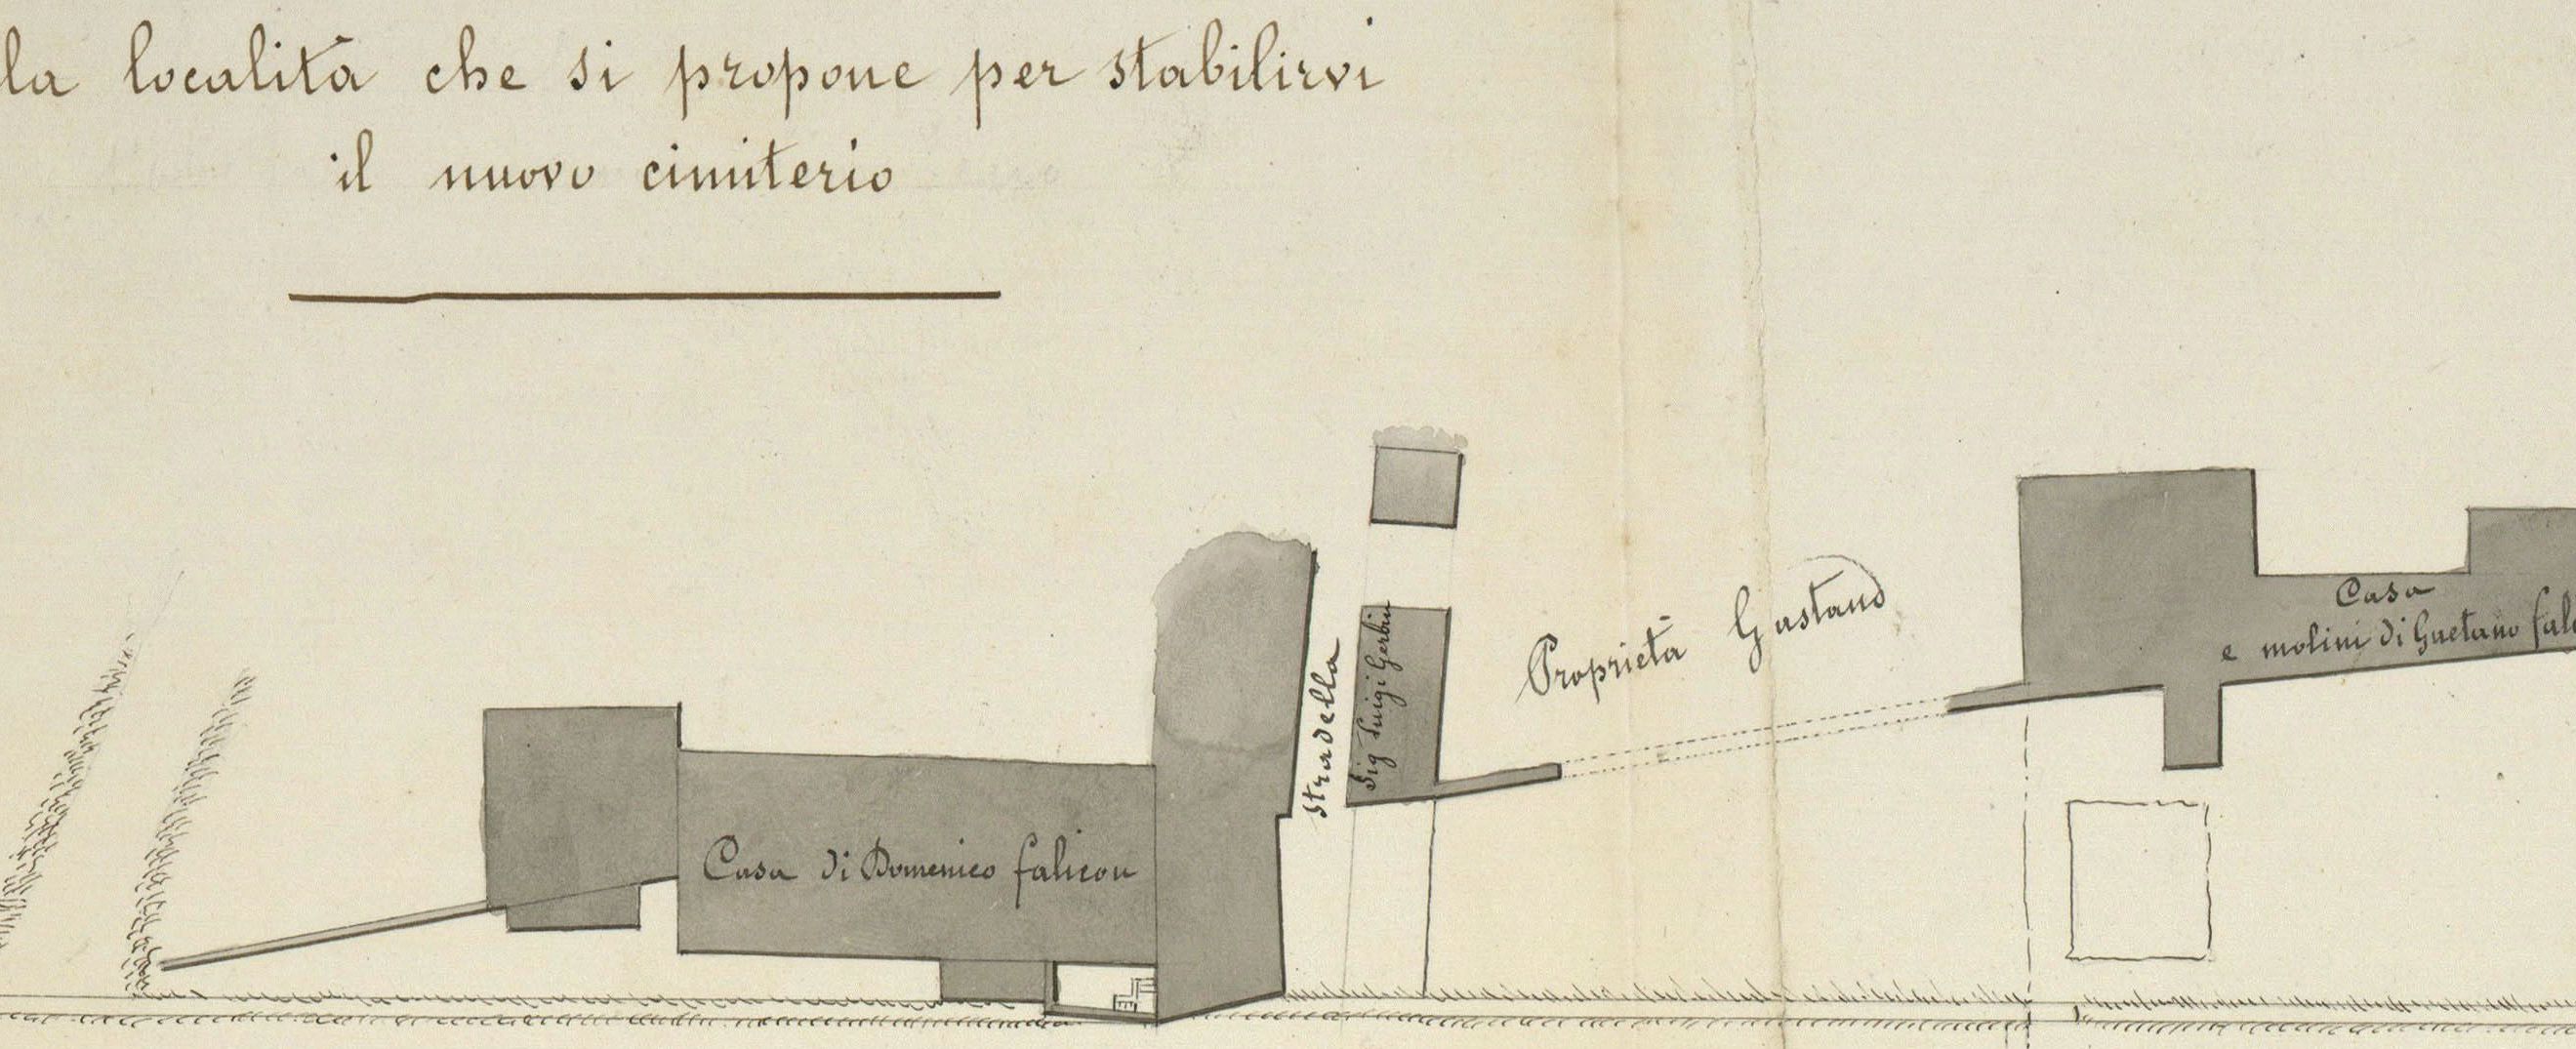 la località che si propone per stabilirvi
il nuovo cimiterio
Casa di Domenico falicon
stradella
Sig Luigi Gerbin
Proprietà Gastaud
Casa
e molini di Gaetano fali